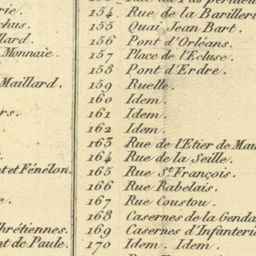 rie.
chus.
llard.
Monnaie.
Maillard.
rs.
t et Fénélon.
re.
hrétiennes.
nt de Paule.
154 Rue de la Barilleri
155 Quai Jean Bart.
156 Pont d'Orléans.
157 Place de l'Ecluse.
158 Pont d'Erdre.
159 Ruelle.
160 Idem.
161 Idem.
162 Idem.
163 Rue de l'Etier de Mau
164 Rue de la Seille.
165 Rue St. François.
166 Rue Rabelais.
167 Rue Coustou.
168 Casernes de la Genda
169 Casernes d'Infanteri
170 Idem. Idem.